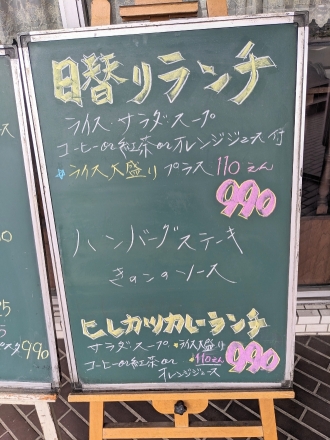 日替りランチ
ライス サラダ スープ
コーヒーor紅茶orオレンジジュース付
☆ライス大盛り プラス110えん
990
ハンバーグステーキ
きのこのソース
ヒレカツカレーランチ
サラダ スープ ライス大盛り
コーヒーor紅茶or 110えん 990
オレンジジュース
990